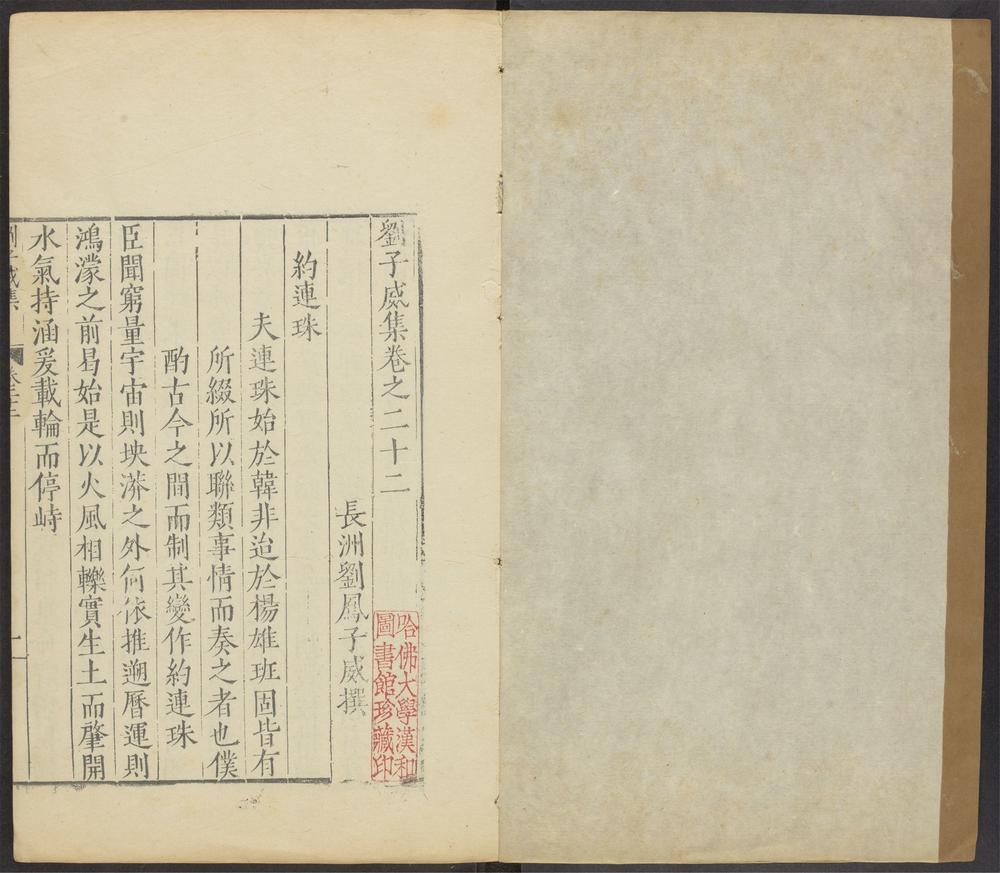 劉子威集卷之二十二
長洲劉鳳子威撰
約連珠
夫連珠始於韓非迨於楊雄班固皆有
所綴所以聯類事情而奏之者也僕
酌古今之間而制其變作約連珠
臣聞窮量宇宙則坱漭之外何依推遡曆運則
鴻濛之前曷始是以火風相轢實生土而肇開
水氣持涵爰載輪而停峙
劉子威集
卷二十二
一
哈佛大學漢和
圖書館珍藏印